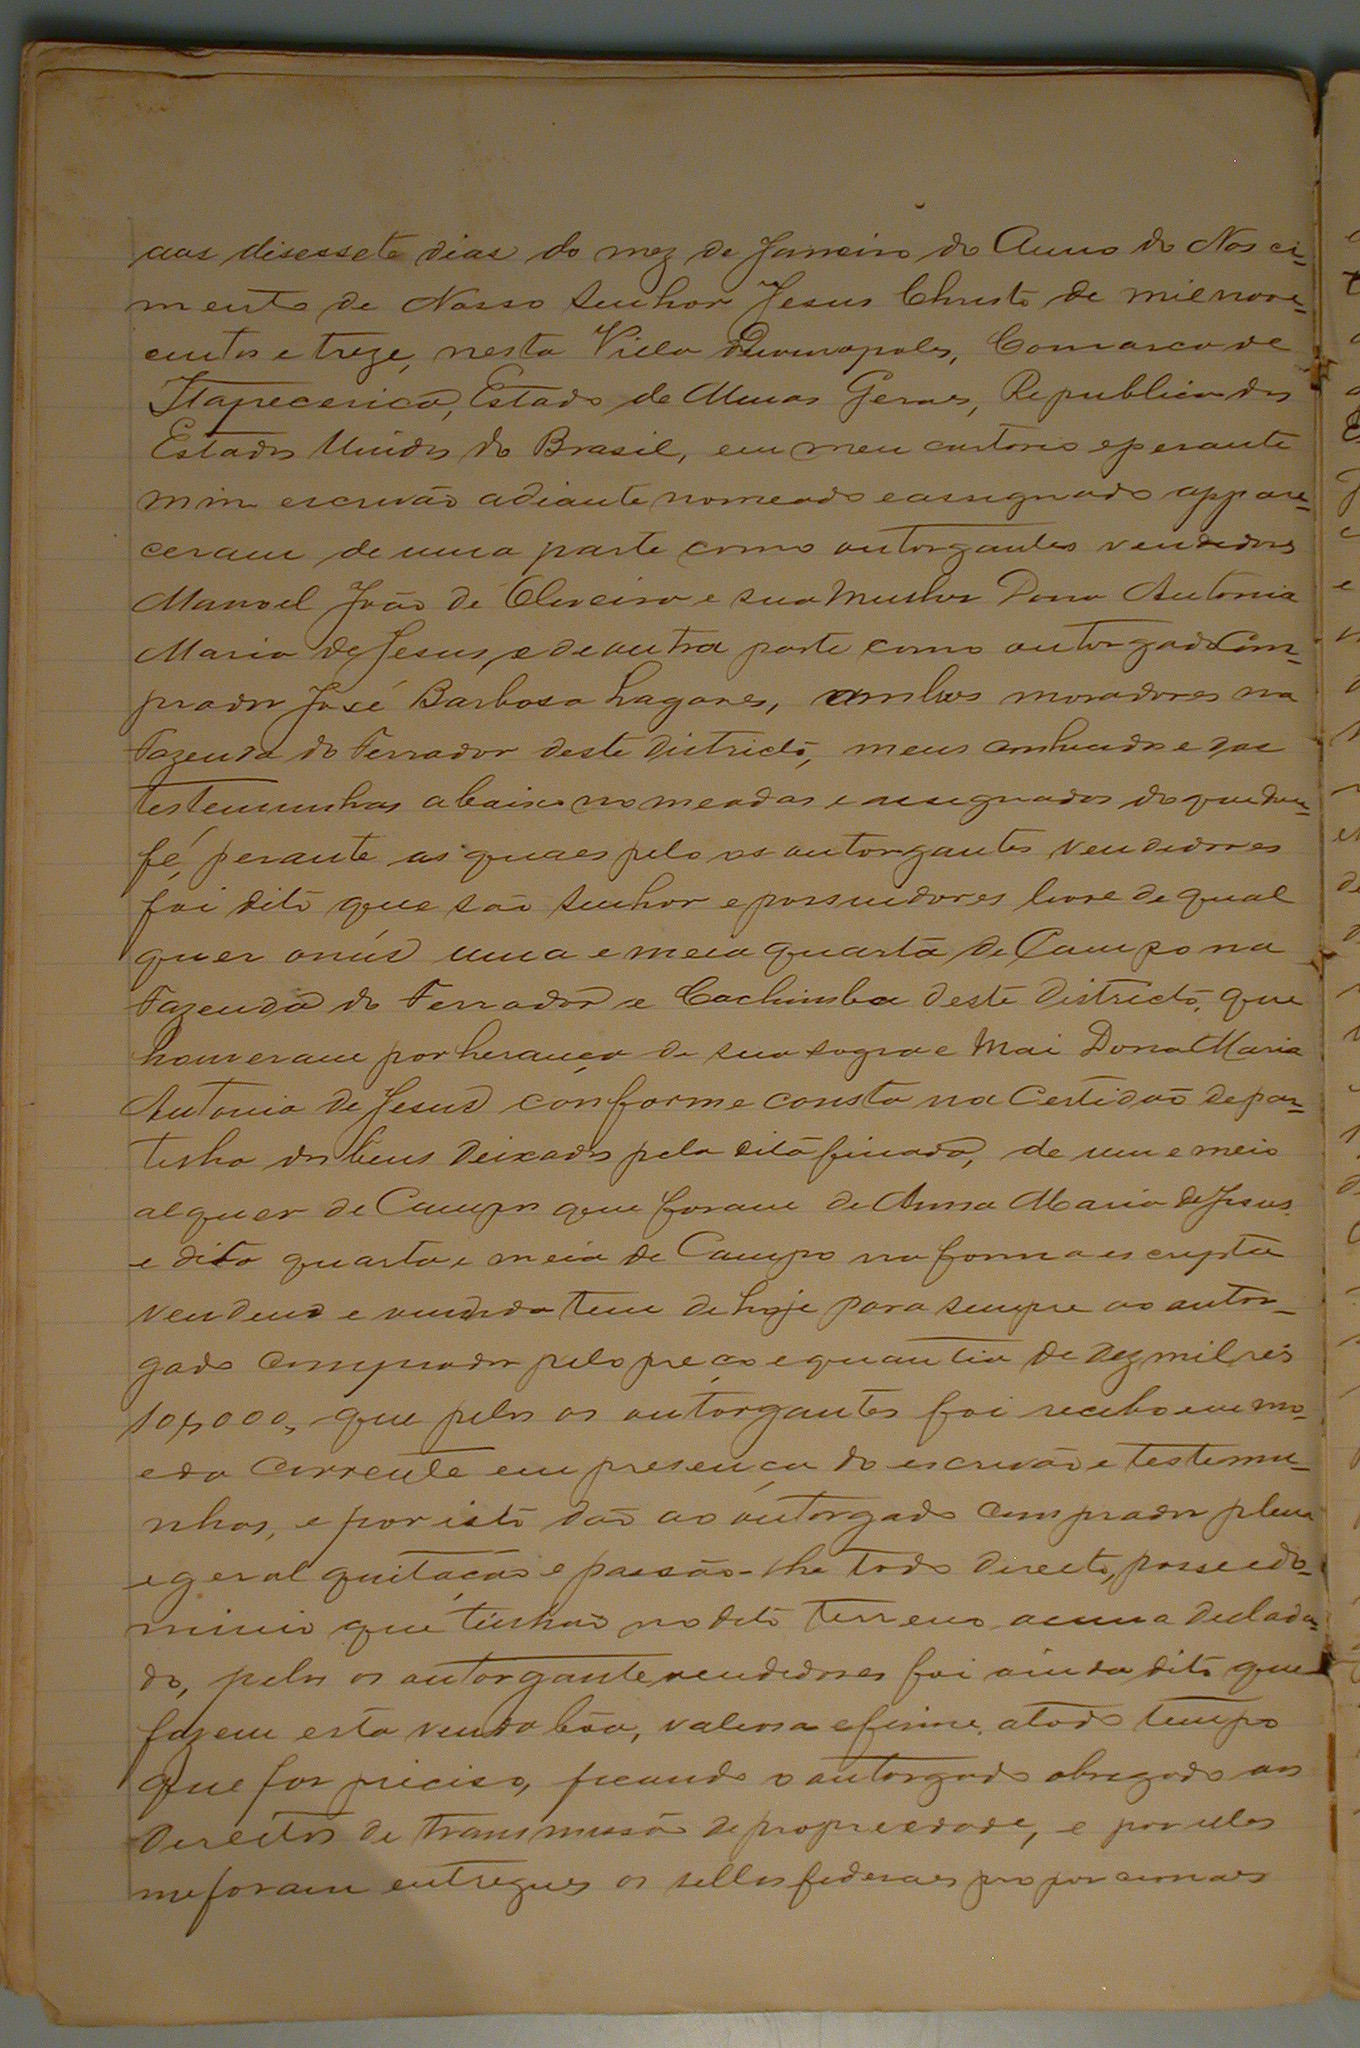 aos disessete dias do mez de Janeiro do Anno do Nasci-
mento de Nosso Senhor Jesus Christo de mil nove-
centos e treze, nesta Villa Divinopolis, Comarca de
Itapecerica, Estado de Minas Geraes, Republica dos
Estados Unidos do Brasil, em meu cartorio e perante
mim escrivão adiante nomeado e assignado appare-
ceram de uma parte como outorgantes vendedores
Manoel João de Oliveira e sua mulher Dona Antonia
Maria de Jesus, e de outra parte como outorgado Com-
prador José Barbosa Lagares, ambos moradores na
Fazenda do Ferrador deste districto, meus conhecidos e das
testemunhas abaixo nomeadas e assignados do que dou
fé, perante as quaes pelo os outorgantes vendedores
foi dito que são senhor e possuidores livre de qual
quer onús uma e meia quarta de Campo na
Fazenda do Ferrador e Cachimba deste districto, que
houveram por herança de sua sogra e Mai Dona Maria
Antonia de Jesus conforme consta na Certidão de par-
tilha dos bens deixados pela dita finada, de um e meio
alquer de Campo que foram de Anna Maria de Jesus
e dita quarta e meia de Campo na forma escripta
vendem e vendido tem de hoje para sempre ao outor-
gado comprador pelo preço e quantia de dez mil reis
10$000, que pelos os outorgantes foi recebo em mo-
eda corrente em presença do escrivão e testemu-
nhas, e por isto dão ao outorgado comprador plena
e geral quitação e passão-lhe todo direito, posse e do-
minio que tinhão no dito terreno acima declara-
do, pelos os outorgante vendedores foi ainda dito que
fazem esta venda bôa, valiosa e firme, a todo tempo
que for preciso, ficando o outorgado obrigado aos
direitos de transmissão de propriedade, e por elles
me foram entregues os sellos federaes proporcionaes